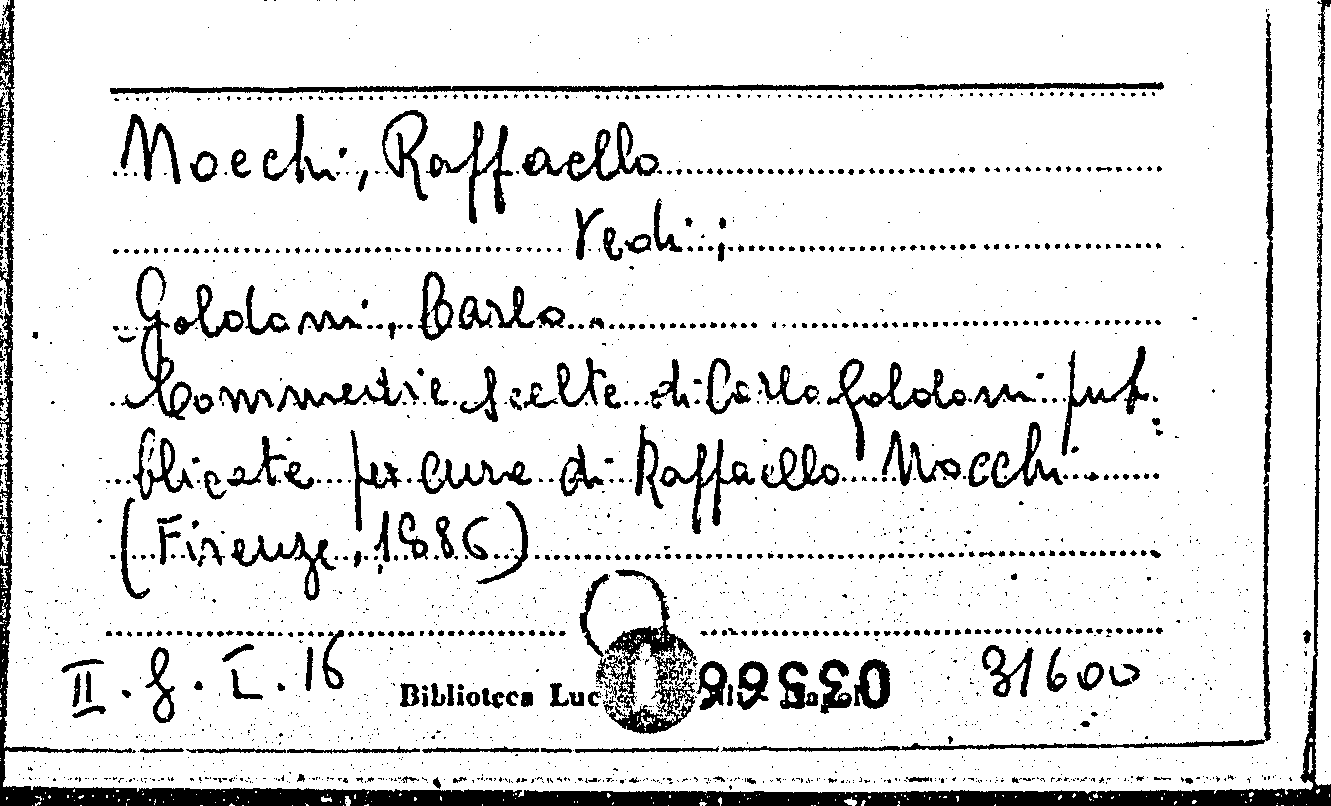 Nocchi, Raffaello
Vedi;
Goldoni, Carlo.
Commedie scelte di Carlo Goldoni pub:
blicate per cura di Raffaello Nocchi.
(Firenze, 1886)
II. G. I. 16
Biblioteca Luc
31600